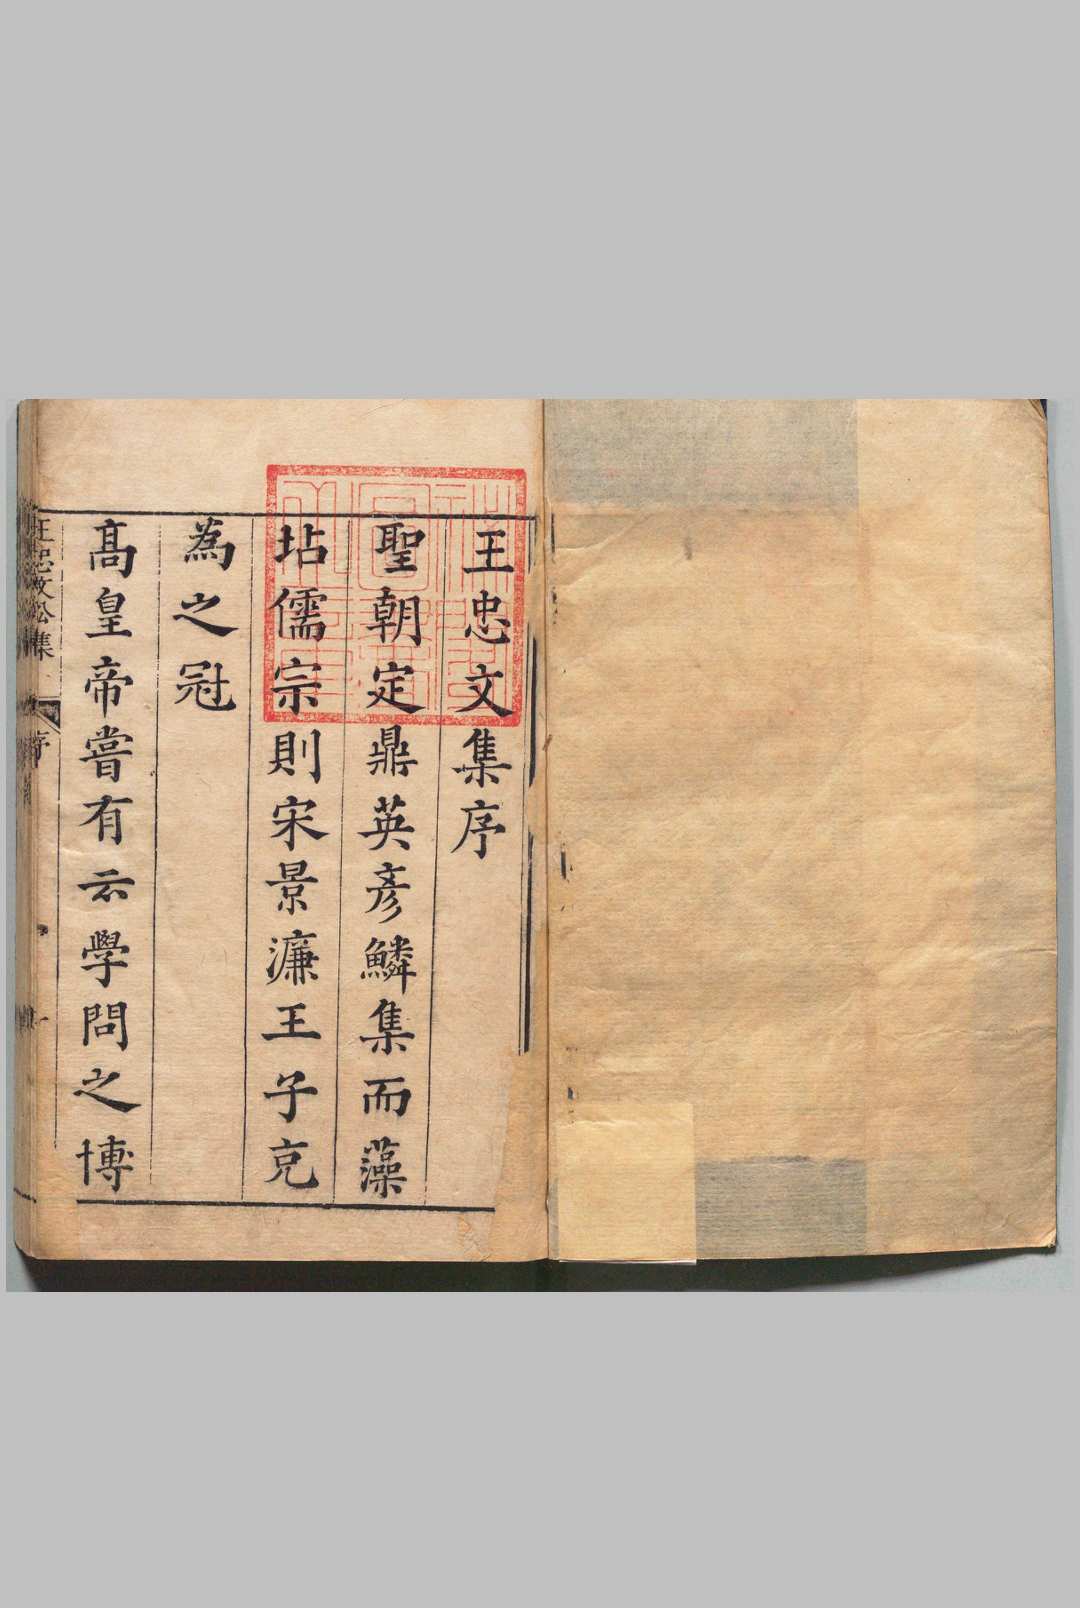 王忠文集序
聖朝定鼎英彥鱗集而藻
坫儒宗則宋景濂王子克
為之冠
高皇帝嘗有云學問之博
王忠文公集
序